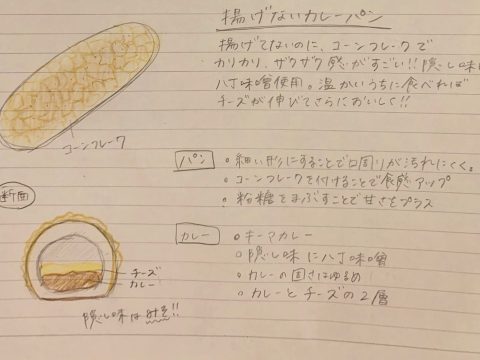 揚げないカレーパン
揚げてないのに、コーンフレークで
カリカリ、ザクザク感がすごい!!隠し味
八丁味噌使用。温かいうちに食べれば
チーズが伸びてさらにおいしく!!
コーンフレーク
パン
・細い形にすることで口周りが汚れにくく。
・コーンフレークを付けることで食感アップ
・粉糖をまぶすことで甘さをプラス
断面
カレー
・キーマカレー
・隠し味に八丁味噌
・カレーの固さはゆるめ
・カレーとチーズの2層
チーズ
カレー
隠し味は